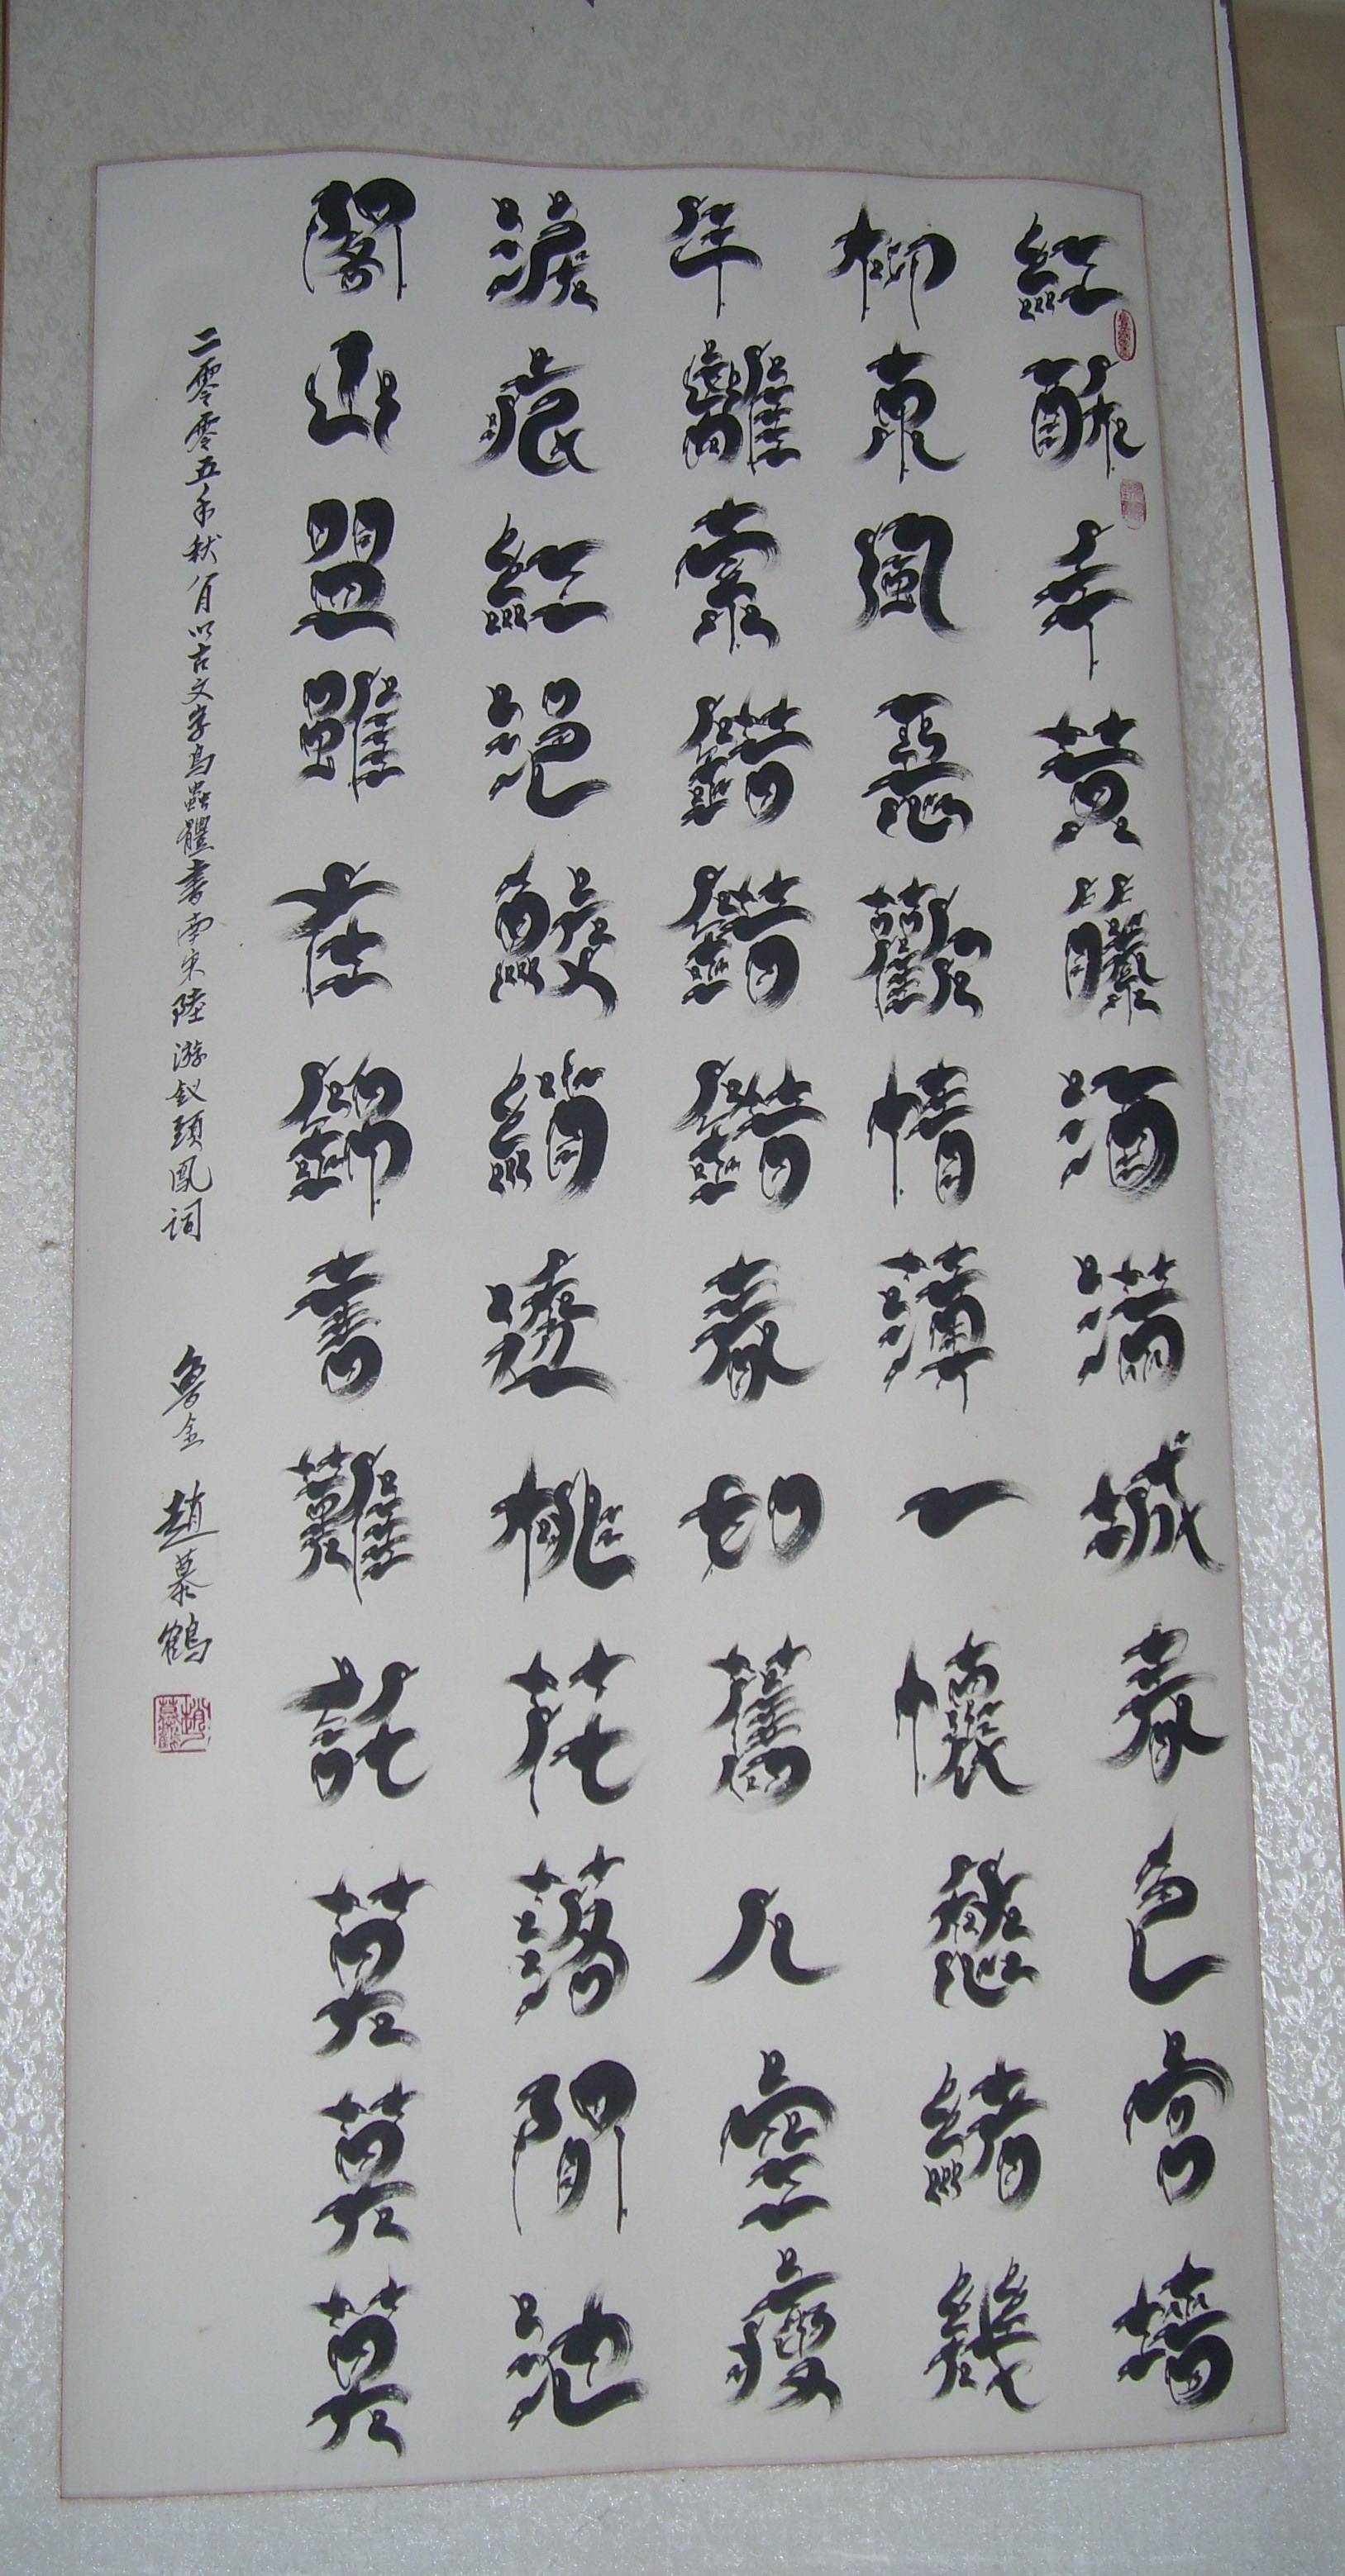 紅酥手黃藤酒滿城春色宮墻
柳東風惡歡情薄一懷愁緒幾
年離索錯錯錯春如舊人空瘦
淚痕紅浥鮫綃透桃花落閒池
閣山盟雖在錦書難託莫莫莫
二零零五年秋月以古文字鳥蟲體書南宋陸游釵頭鳳詞
魯金 趙慕鶴
趙慕鶴